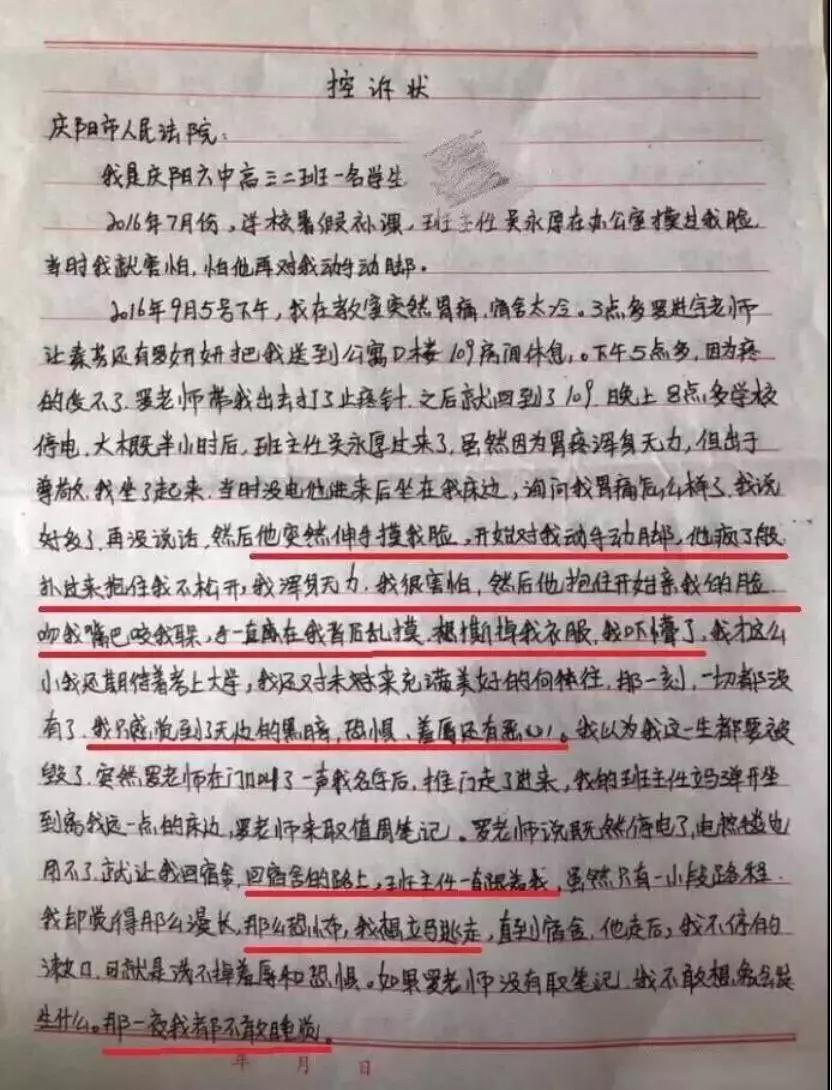 控诉状
庆阳市人民法院：
我是庆阳六中高三二班一名学生
2016年7月份，学校暑假补课，班主任吴永厚在办公室摸过我脸
当时我就害怕，怕他再对我动手动脚。
2016年9月5号下午，我在教室突然胃痛，宿舍太冷。3点多罗进宇老师
让素芳还有罗妍妍把我送到公寓D楼109房间休息。下午5点多，因为疼
的受不了，罗老师带我出去打了止疼针，之后就回到了109，晚上8点多学校
停电，大概半小时后，班主任吴永厚过来了，虽然因为胃疼浑身无力，但出于
尊敬，我坐了起来，当时没电他进来后坐在我床边，询问我胃痛怎么样了，我说
好多了，再没说话，然后他突然伸手摸我脸，开始对我动手动脚，他疯了般
扑过来抱住我不松开，我浑身无力，我很害怕，然后他抱住开始亲我的脸
吻我嘴巴咬我耳朵，手一直在我背后乱摸，想撕掉我衣服，我吓懵了，我才这么
小我还期待着考上大学，我还对未来充满美好的向往，那一刻，一切都没
有了，我只感觉到了无边的黑暗，恐惧、羞辱还有恶心！。我以为我这一生都要被
毁了，突然罗老师在门口叫了一声我名字后，推门走了进来，我的班主任立马弹开坐
到离我远一点的床边，罗老师来取值周笔记。罗老师说既然停电了，电热毯也
用不了，就让我回宿舍，回宿舍的路上，班主任一直跟着我，虽然只有一小段路程
我却觉得那么漫长，那么恐怖，我想立马逃走，直到宿舍，他走后，我不停的
漱口，可就是洗不掉羞辱和恐惧。如果罗老师没有取笔记，我不敢想，会发
生什么。那一夜我都不敢睡觉。
年 月 日